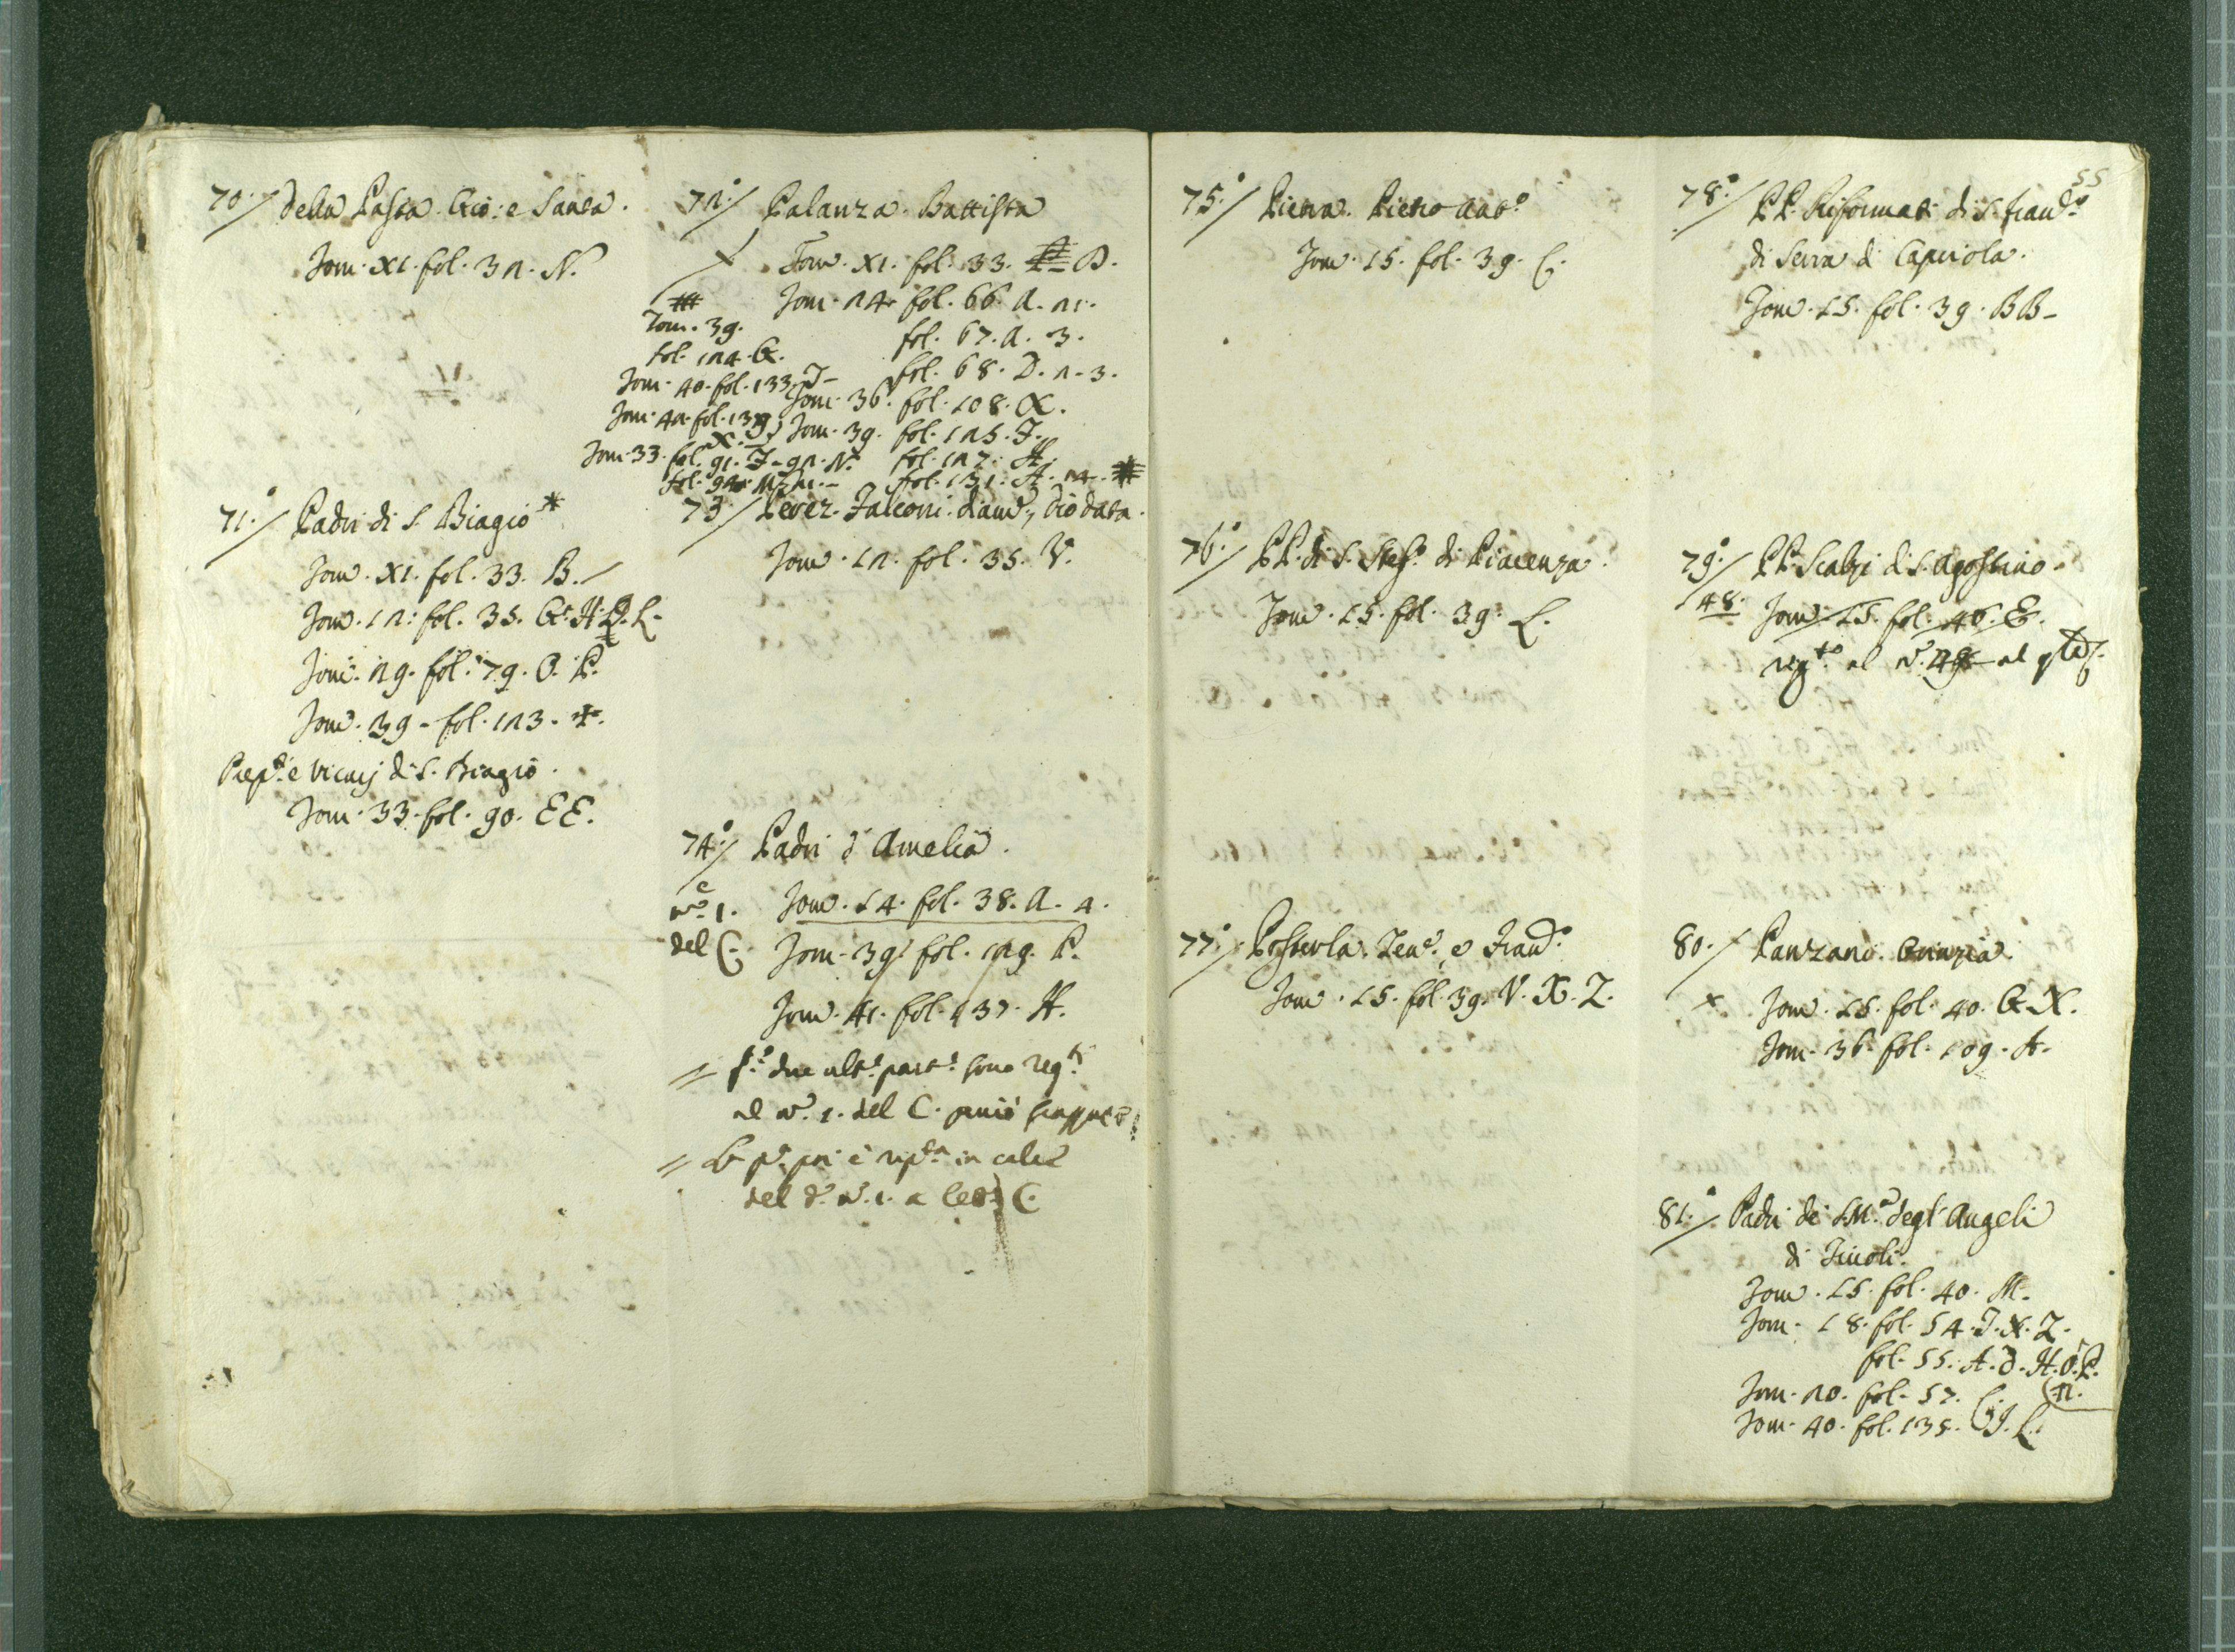 70./ della Pasta. Gio: e Santa.
Tom. XI. fol. 32. N.
71./ Padri di S. Biagio *
Tom. XI. fol. 33. B.
Tom. 12. fol. 35. G. H. L.
Tom. 29. fol. 79. O. P.
Tom. 39 - fol. 123.
e Vicarij di S. Biagio.
Tom. 33. fol. 90. EE.
72./ Palanza. Battista
Tom. XI. fol. 33. D.
Tom. 24. fol. 66. A. 21.
fol. 67. A. 3.
fol. 68. D. 2-3.
Tom. 36. fol. 108. X.
Tom. 39. fol. 125. I.
fol. 127. H.
fol. 131. A. 24.
Tom. 39.
fol. 124. G.
Tom. 40. fol. 133. I-
Tom. 42. fol.
Tom. 33. fol. 91. I- 92. N.
73./ Perez. Falconi. Diodata.
Tom. 12. fol. 35. V.
74./ Padri d'Amelia.
n.o 1.
del C.
Tom. 14. fol. 38. A. 4.
Tom. 39. fol. 129. P.
Tom. 41. fol. 137. H.
// due ult.e part.e sono reg.te
al n.o 1. del C.
// poi è in calce
del d.o n.o 1. a C.
75./ Pietra. Pietro Ant.o
Tom. 15. fol. 39. C.
76./ PP. di S. Stef.o di Piacenza.
Tom. 15. fol. 39. L.
77./ Posterla. e
Tom. 15. fol. 39. V. X. Z.
55
78./ PP. Riformati di S. Fran.co
di Serra di Capriola.
Tom. 15. fol. 39. BB-
79./ PP. Scalzi di S. Agostino.
48. Tom. 15. fol. 40. E.
reg.to al n.o al
80./ Panzano.
x Tom. 15. fol. 40. G. X.
Tom. 36. fol. 109. A.
81./ Padri di S. M.a degl'Angeli
di Tivoli.
Tom. 15. fol. 40. M.
Tom. 18. fol. 54. I. X. Z.
fol. 55. A. D. H. O. P.
Tom. 20. fol. 57. C.
Tom. 40. fol. 135. I. L.